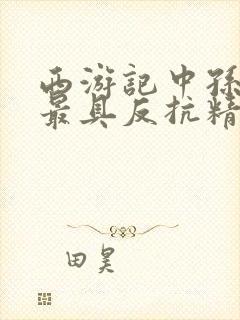 西游記中孫
最具反抗精
田昊